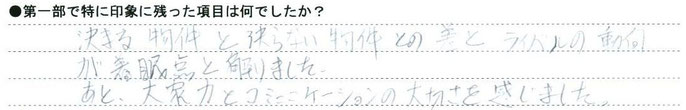 ●第一部で特に印象に残った項目は何でしたか？
決まる物件と決らない物件との差とライバルの動向
が着眼点と解りました。
あと、大家力とコミニケーションの大切さを感じました。